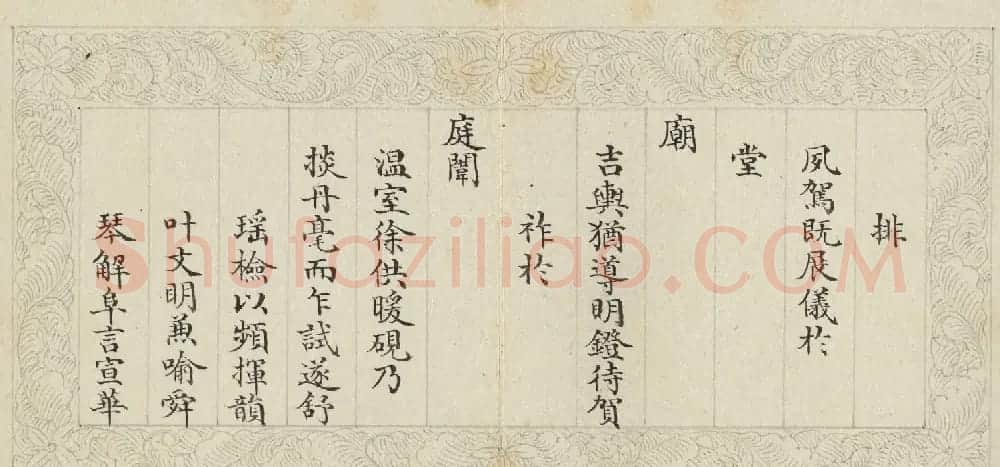 排
夙駕既展儀於
堂
廟
吉輿猶導明鐙待賀
祚於
庭闈
溫室徐供暖硯乃
掞丹毫而乍試遂舒
瑶檢以頻揮韻
叶文明兼喻舜
琴解阜言宣華
Shufaziliao.COM